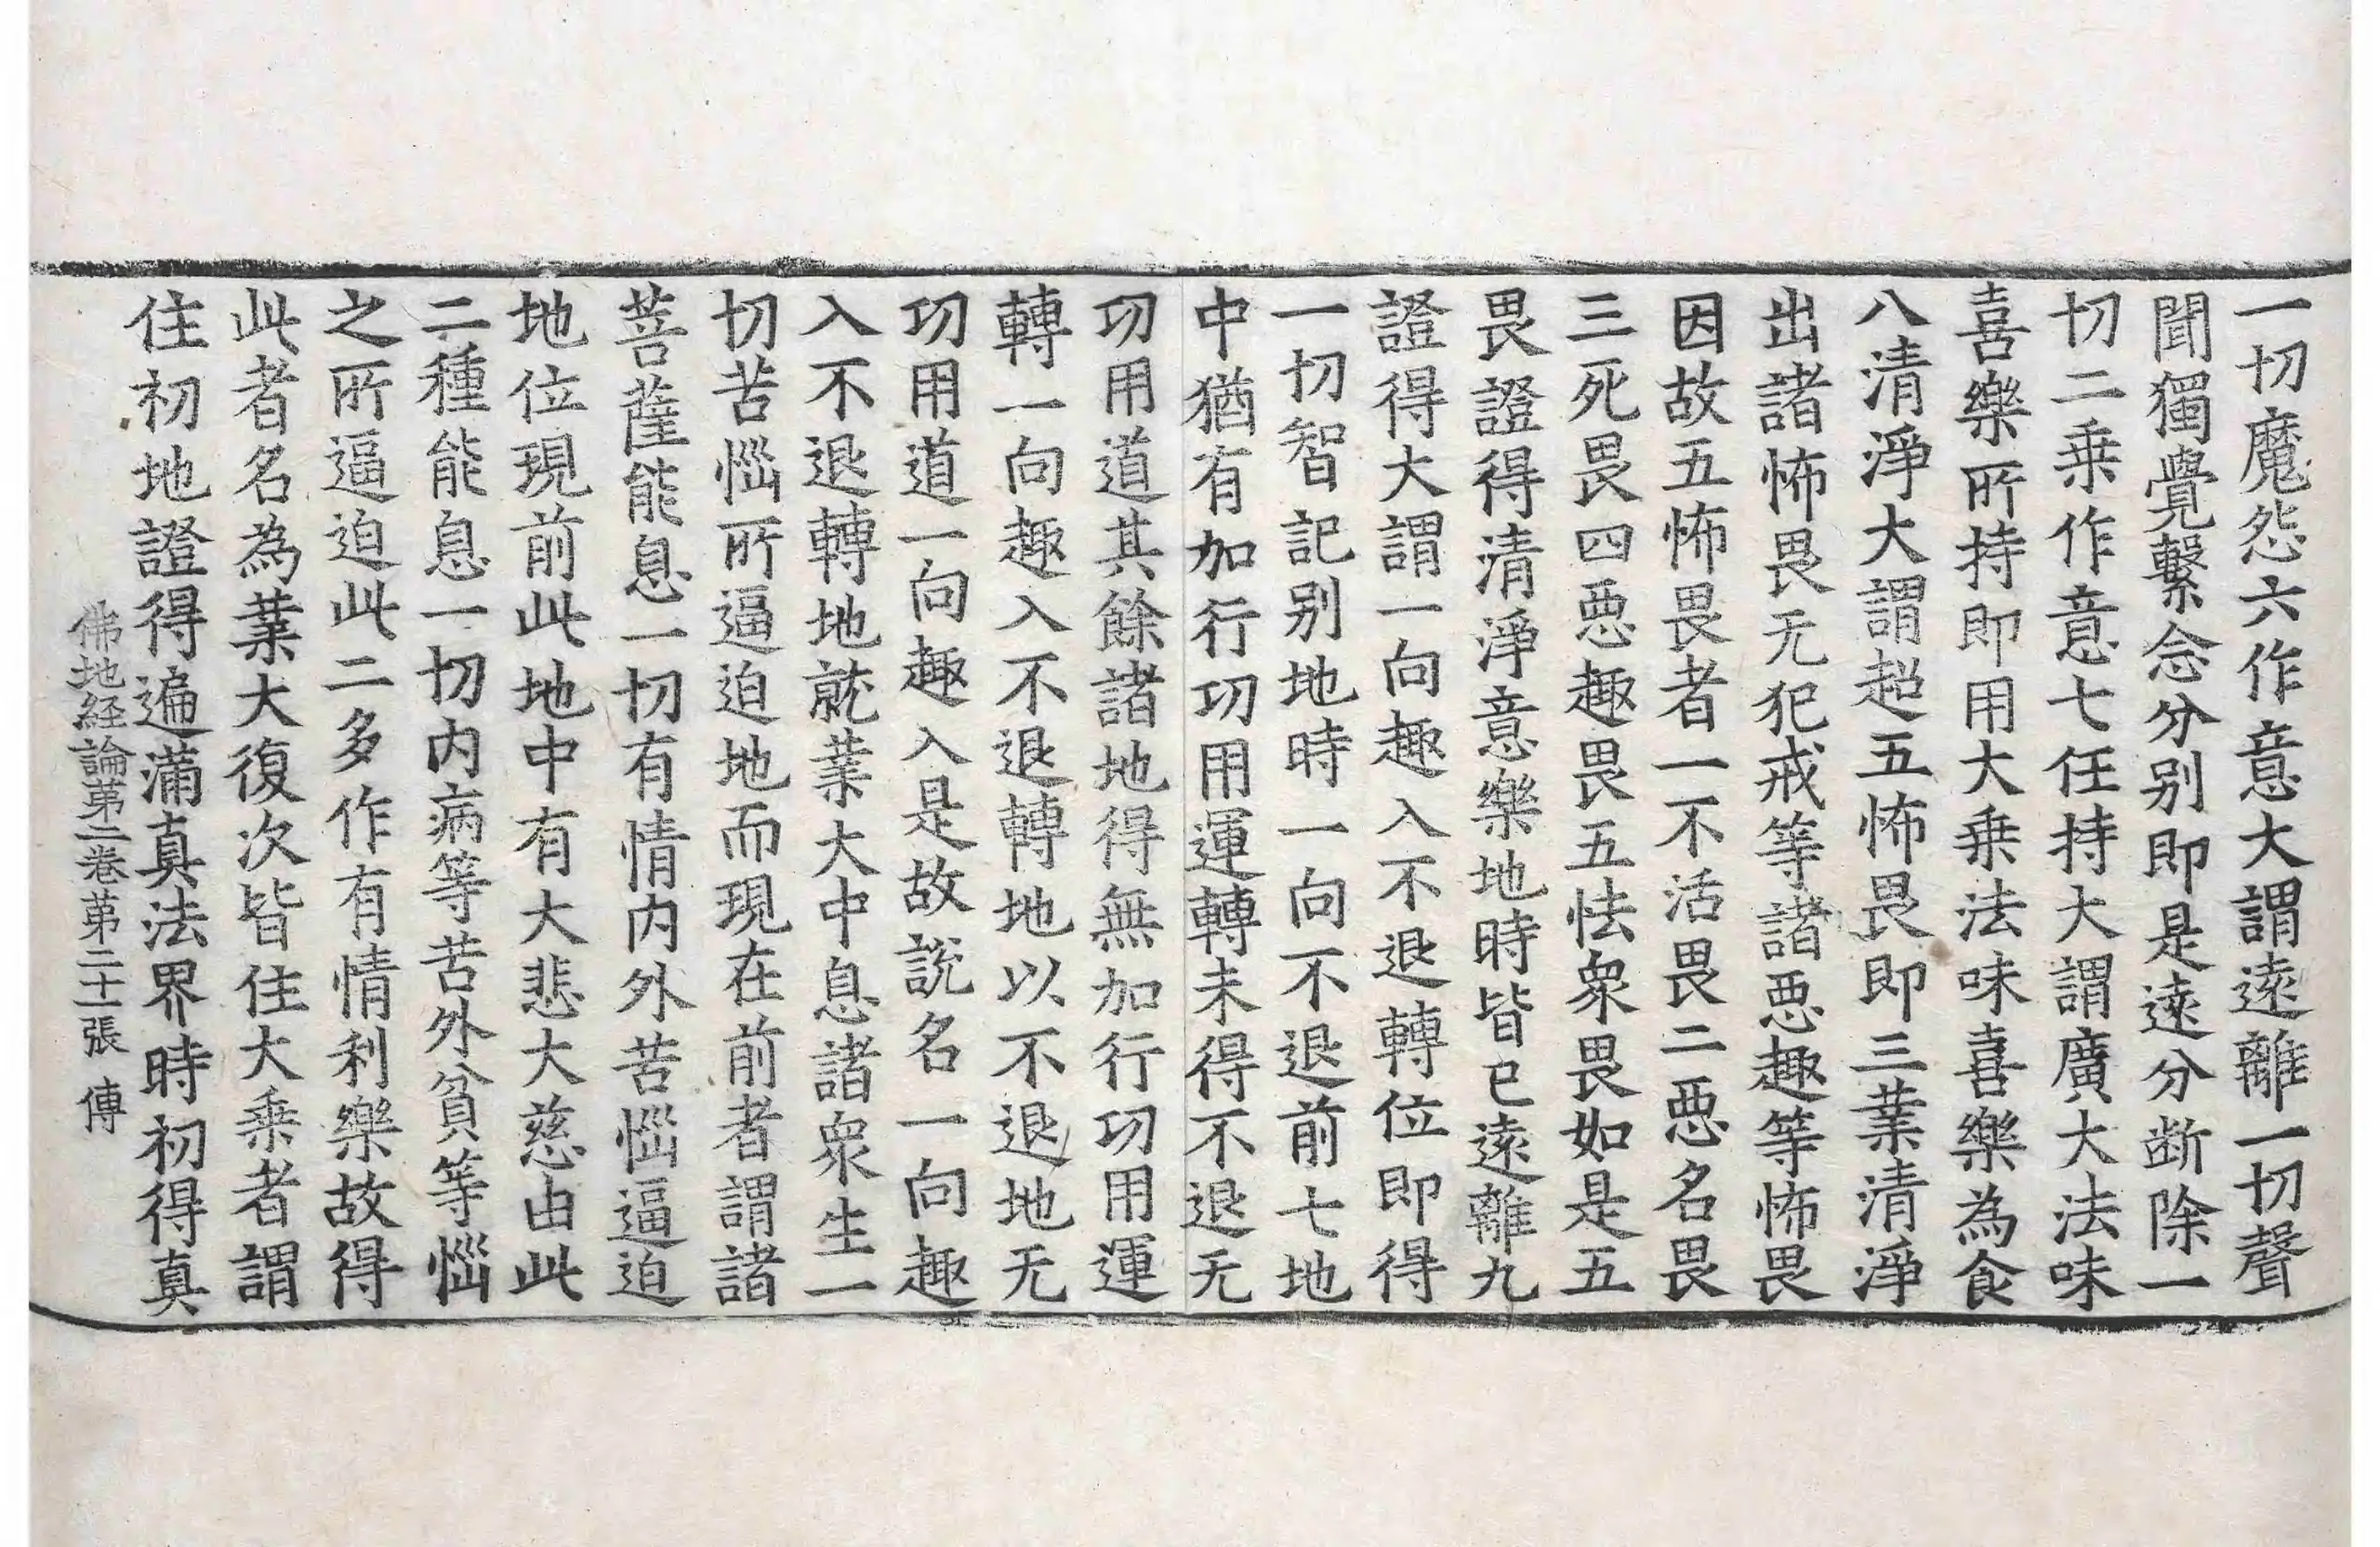 一切魔怨六作意大謂遠離一切聲
聞獨覺繫念分别即是遠分断除一
切二乗作意七任持大謂廣大法味
喜樂所持即用大乗法味喜樂為食
八清淨大謂超五怖畏即三業清淨
出諸怖畏无犯戒等諸惡趣等怖畏
因故五怖畏者一不活畏二惡名畏
三死畏四惡趣畏五怯衆畏如是五
畏證得清淨意樂地時皆已遠離九
證得大謂一向趣入不退轉位即得
一切智記别地時一向不退前七地
中猶有加行功用運轉未得不退无
功用道其餘諸地得無加行功用運
轉一向趣入不退轉地以不退地无
功用道一向趣入是故說名一向趣
入不退轉地就業大中息諸衆生一
切苦惱所逼迫地而現在前者謂諸
菩薩能息一切有情内外苦惱逼迫
地位現前此地中有大悲大慈由此
二種能息一切内病等苦外貧等惱
之所逼迫此二多作有情利樂故得
此者名為業大復次皆住大乗者謂
住初地證得遍滿真法界時初得真
佛地経論苐二卷苐二十一張 傳